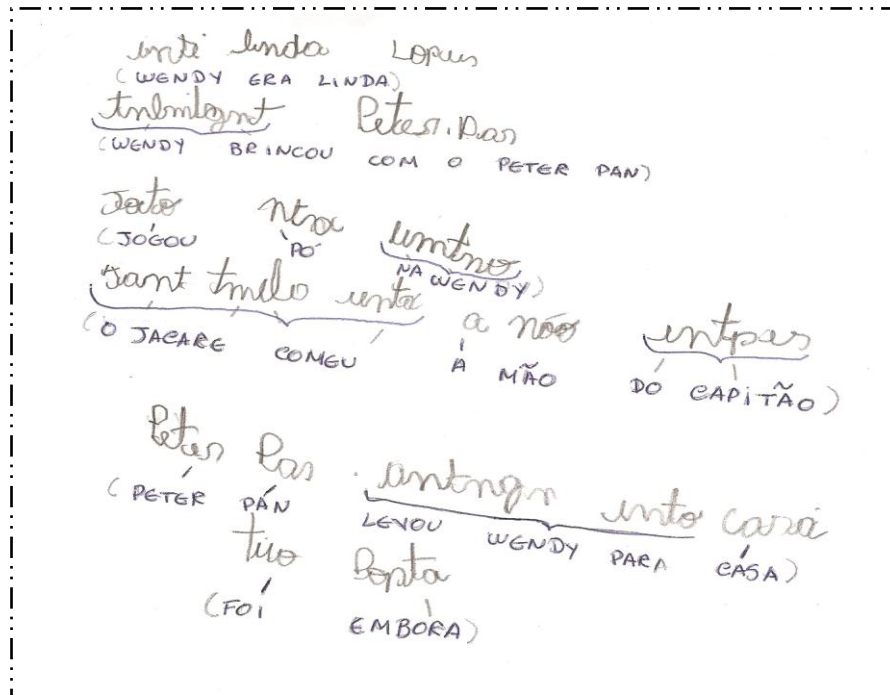 inti linda Lopus
(WENDY ERA LINDA)
tnlmlognt Peter.Pan
(WENDY BRINCOU COM O PETER PAN)
Jato ntra umtno
(JOGOU PÓ NA WENDY)
Jant tmelo unta a nóo untpas
(O JACARE COMEU A MÃO DO CAPITÃO)
Peter Pan . antngn unto casa
(PETER PAN LEVOU WENDY PARA CASA)
tuo Popta
(FOI EMBORA)